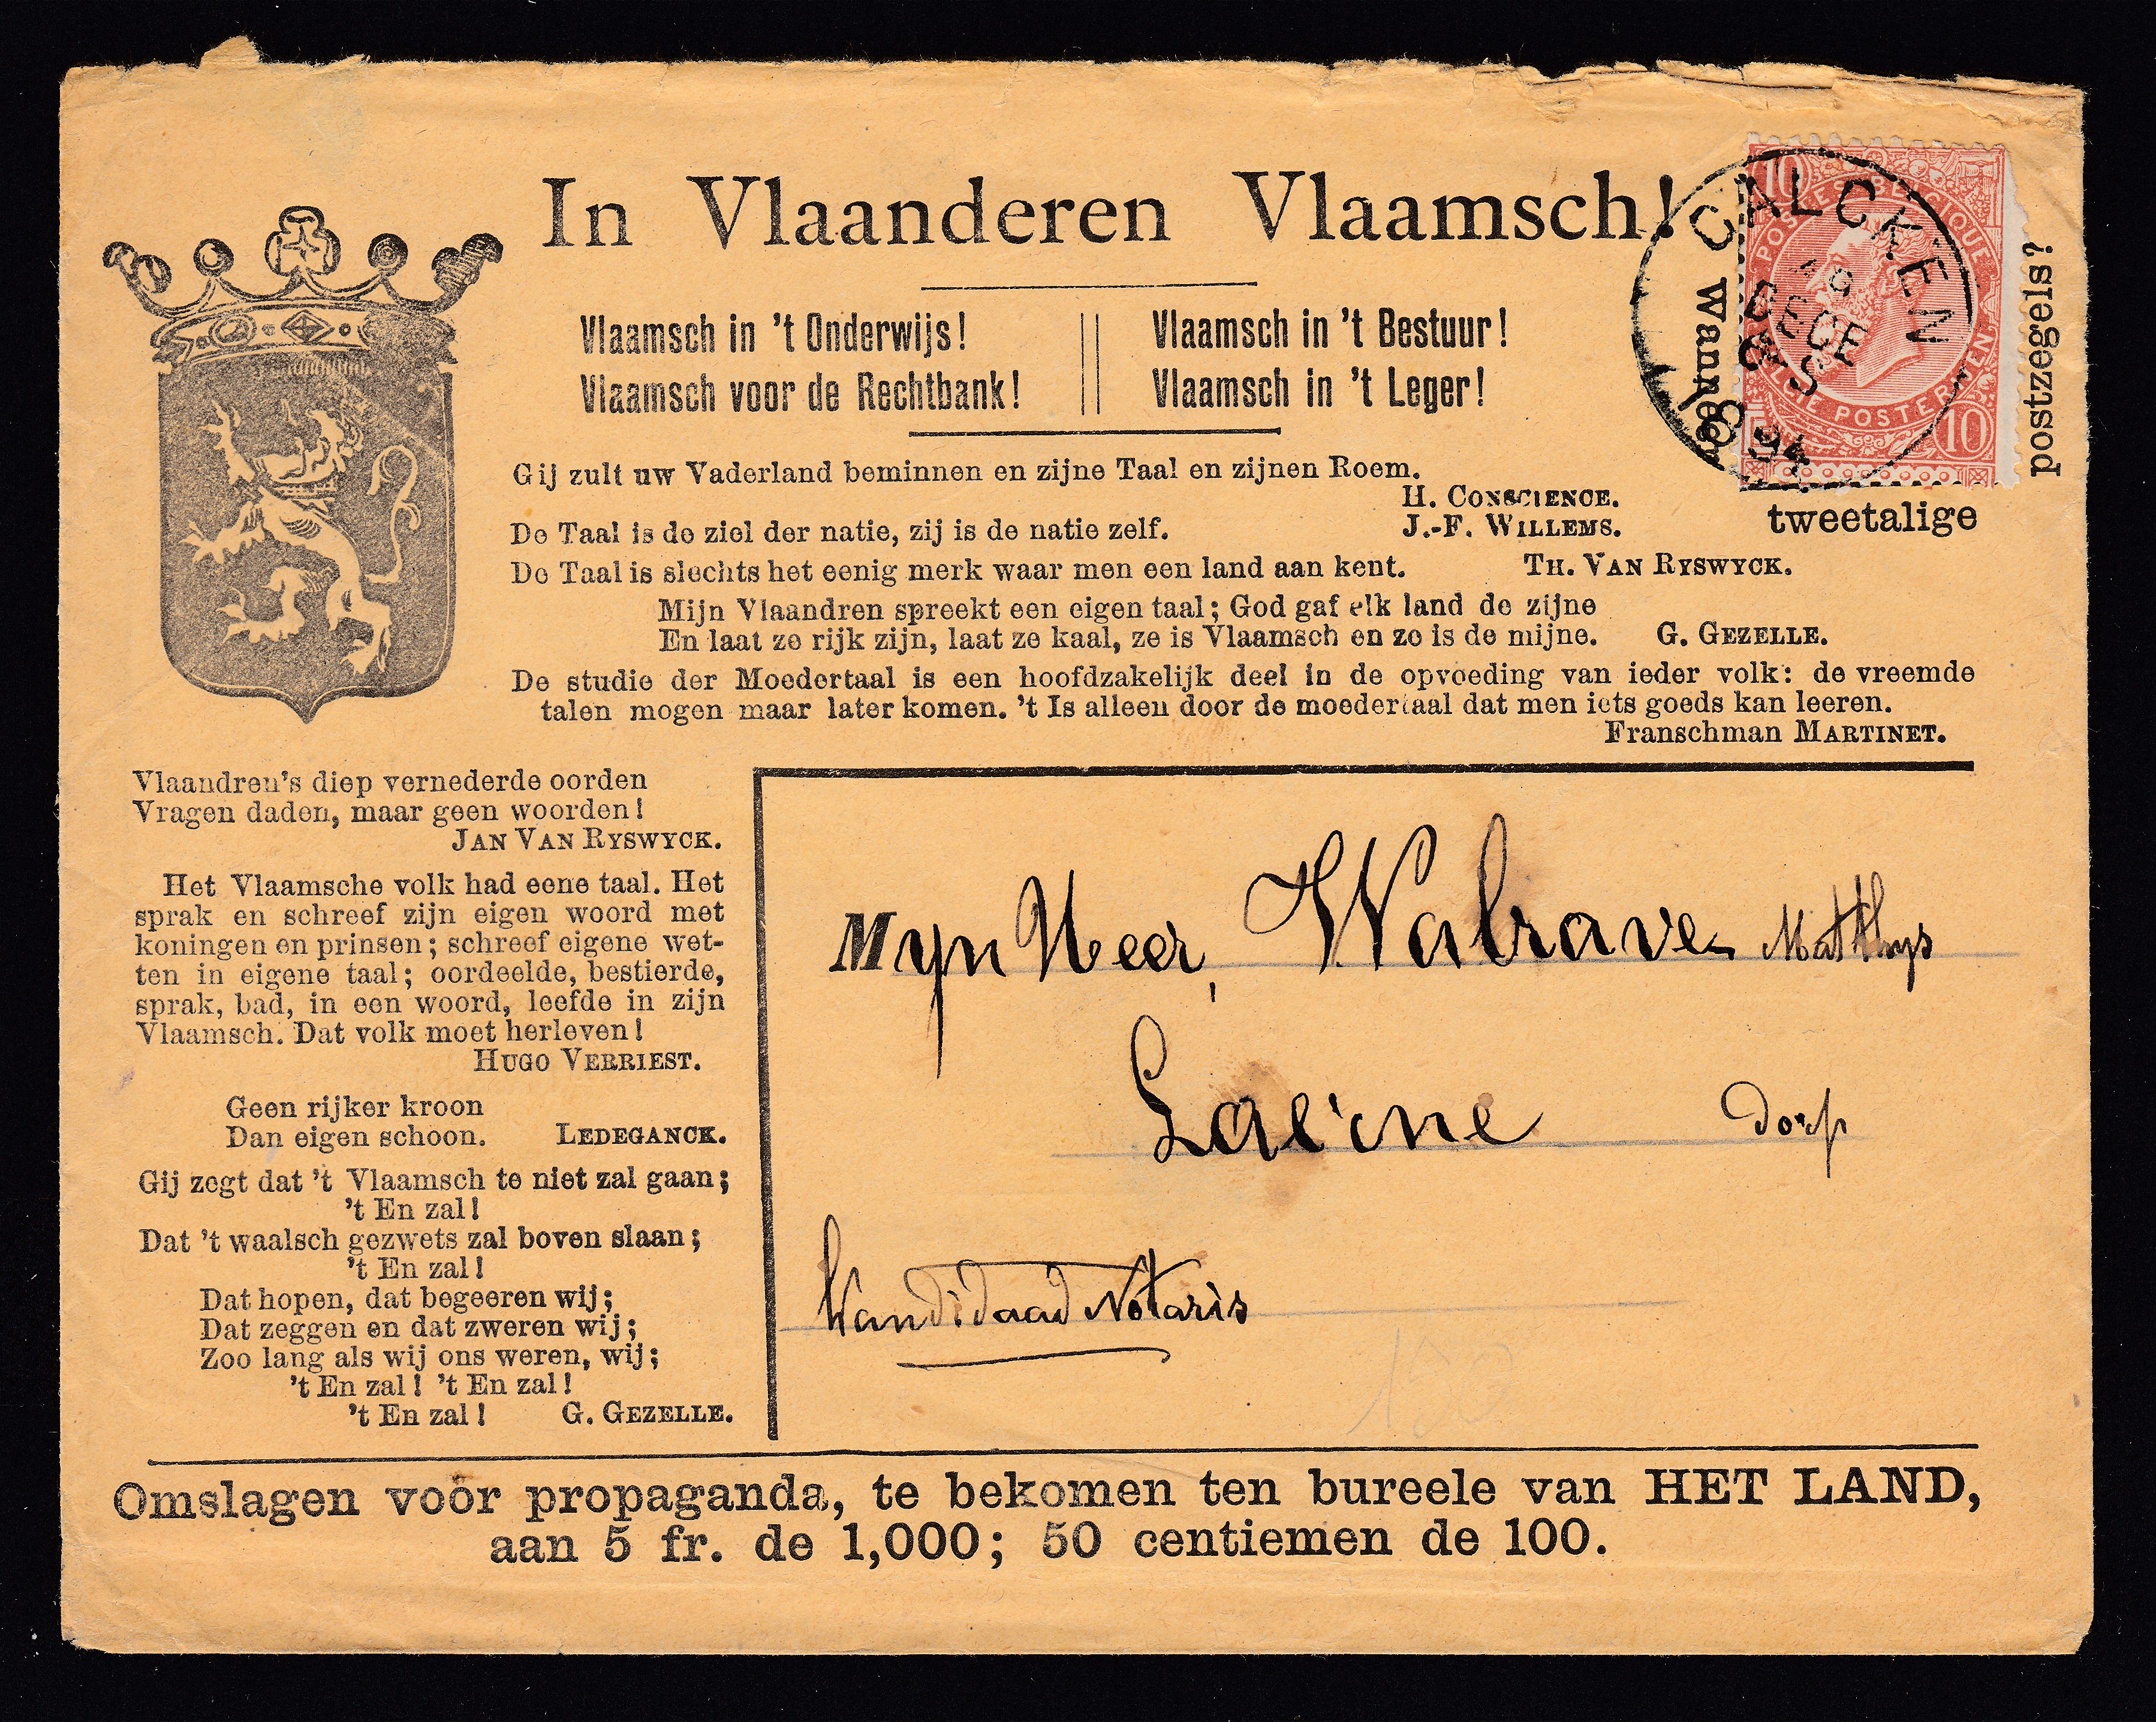 In Vlaanderen Vlaamsch!
Vlaamsch in 't Onderwijs!
Vlaamsch voor de Rechtbank!
Vlaamsch in 't Bestuur!
Vlaamsch in 't Leger!
Gij zult uw Vaderland beminnen en zijne Taal en zijnen Roem.
H. CONSCIENCE.
De Taal is de ziel der natie, zij is de natie zelf. J.-F. WILLEMS.
De Taal is slechts het eenig merk waar men een land aan kent. TH. VAN RYSWYCK.
Mijn Vlaandren spreekt een eigen taal; God gaf elk land de zijne
En laat ze rijk zijn, laat ze kaal, ze is Vlaamsch en ze is de mijne. G. GEZELLE.
De studie der Moedertaal is een hoofdzakelijk deel in de opvoeding van ieder volk: de vreemde
talen mogen maar later komen. 't Is alleen door de moedertaal dat men iets goeds kan leeren.
Franschman MARTINET.
Wanneer
tweetalige
postzegels?
CALCKEN
DECE
1894
10 10
POSTES BELGIQUE
POSTERIJEN
Vlaandren's diep vernederde oorden
Vragen daden, maar geen woorden!
JAN VAN RYSWYCK.
Het Vlaamsche volk had eene taal. Het
sprak en schreef zijn eigen woord met
koningen en prinsen; schreef eigene wet-
ten in eigene taal; oordeelde, bestierde,
sprak, bad, in een woord, leefde in zijn
Vlaamsch. Dat volk moet herleven!
HUGO VERRIEST.
Geen rijker kroon
Dan eigen schoon. LEDEGANCK.
Gij zegt dat 't Vlaamsch te niet zal gaan;
't En zal!
Dat 't waalsch gezwets zal boven slaan;
't En zal!
Dat hopen, dat begeeren wij;
Dat zeggen en dat zweren wij;
Zoo lang als wij ons weren, wij;
't En zal! 't En zal!
't En zal! G. GEZELLE.
Myn Heer, Walrave Matthys
Laerne dorp
Kandidaad Notaris
150
Omslagen voor propaganda, te bekomen ten bureele van HET LAND,
aan 5 fr. de 1,000; 50 centiemen de 100.